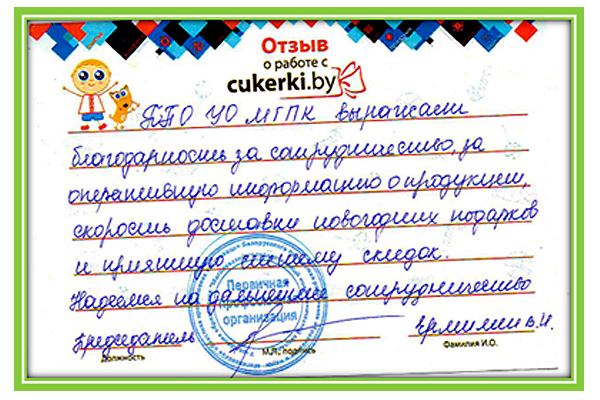 Отзыв
о работе с
cukerki.by
ППО УО МГПК выражаем
благодарность за сотрудничество, за
оперативную информацию о продукции,
скорость доставки новогодних подарков
и приятную систему скидок.
Надеемся на дальнейшее сотрудничество
Председатель
Должность
М.П., подпись
Фамилия И.О.
Первичная
организация